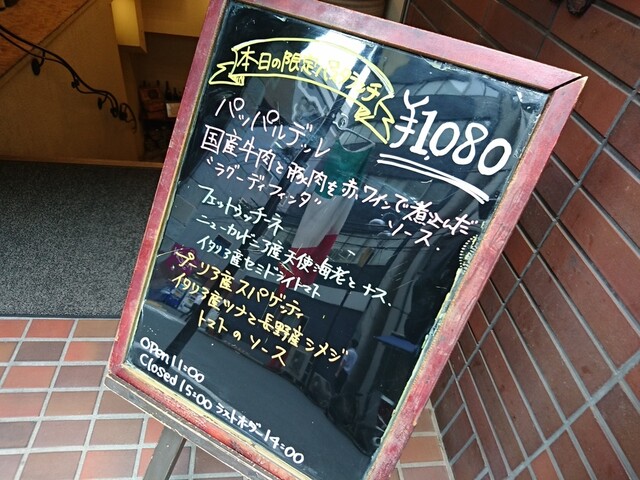 本日の限定パスタランチ
¥1,080
パッパルデッレ
国産牛肉と豚肉を赤ワインで煮込んだ
"ラグーディフィンタ" ソース
フェットゥッチーネ
ニューカレドニア産天使海老とナス、
イタリア産セミドライトマト
プーリア産スパゲッティ
イタリア産ツナと長野産シメジ
トマトのソース
OPEN 11:00
Closed 15:00 ラストオーダー14:00